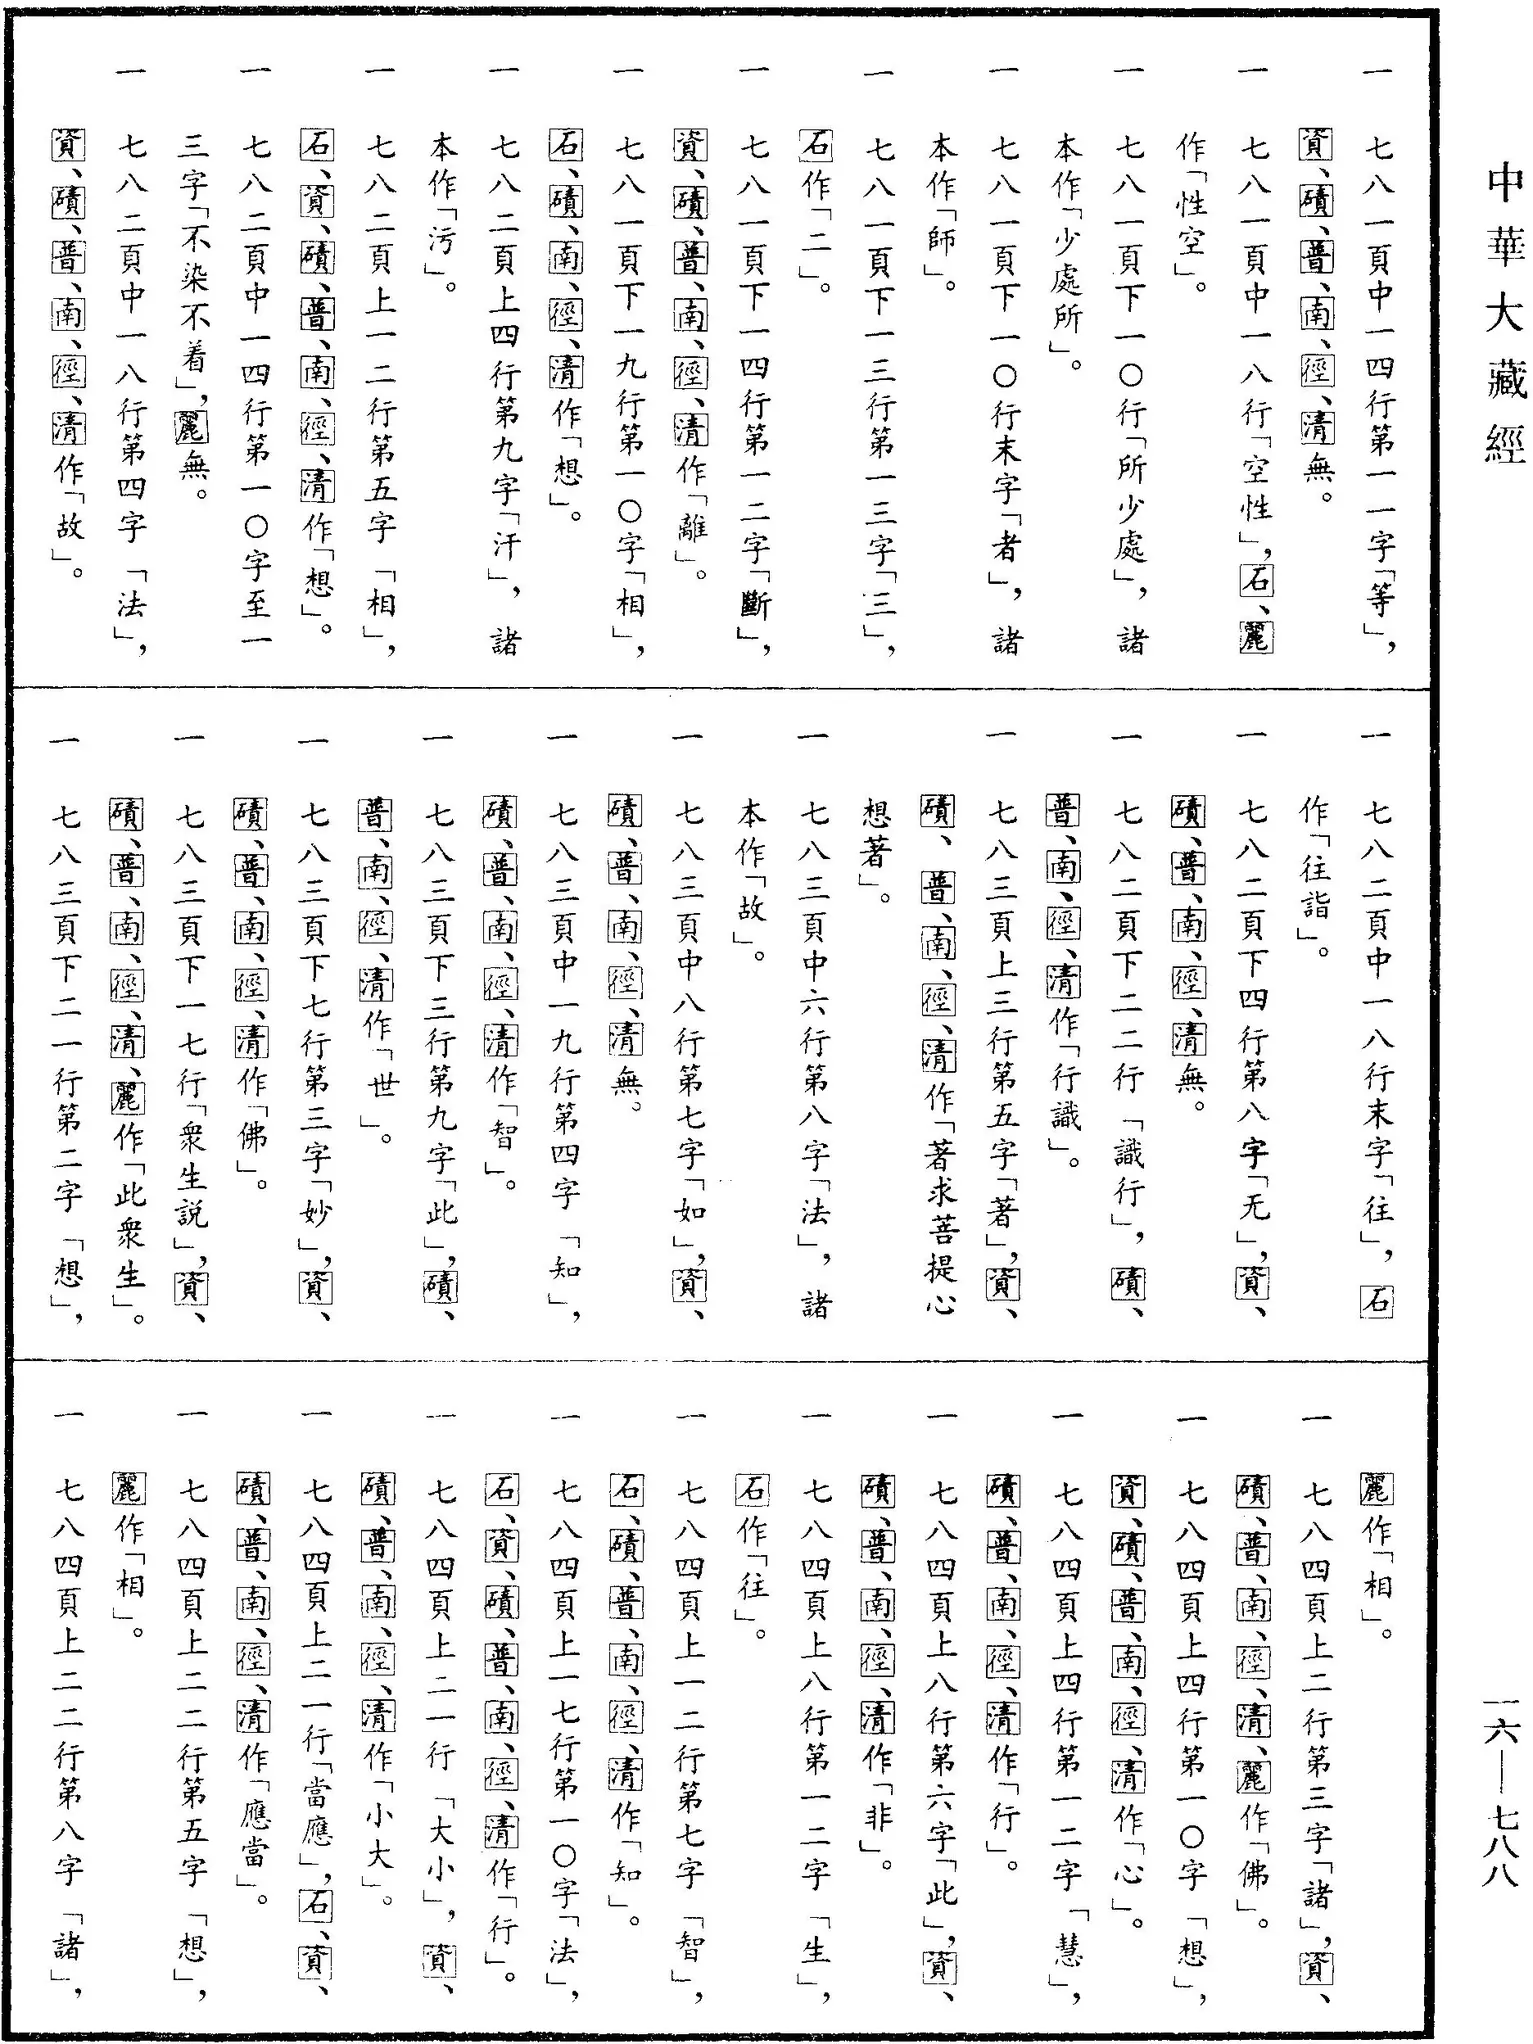 中華大藏經
一 七八一頁中一四行第一一字「等」，
資、磧、普、南、徑、清無。
一 七八一頁中一八行「空性」，石、麗
作「性空」。
一 七八一頁下一〇行「所少處」，諸
本作「少處所」。
一 七八一頁下一〇行末字「者」，諸
本作「師」。
一 七八一頁下一三行第一三字「三」，
石作「二」。
一 七八一頁下一四行第一二字「斷」，
資、磧、普、南、徑、清作「離」。
一 七八一頁下一九行第一〇字「相」，
石、磧、南、徑、清作「想」。
一 七八二頁上四行第九字「汗」，諸
本作「污」。
一 七八二頁上一二行第五字「相」，
石、資、磧、普、南、徑、清作「想」。
一 七八二頁中一四行第一〇字至一
三字「不染不着」，麗無。
一 七八二頁中一八行第四字「法」，
資、磧、普、南、徑、清作「故」。
一 七八二頁中一八行末字「往」，石
作「往詣」。
一 七八二頁下四行第八字「无」，資、
磧、普、南、徑、清無。
一 七八二頁下二二行「識行」，磧、
普、南、徑、清作「行識」。
一 七八三頁上三行第五字「著」，資、
磧、普、南、徑、清作「著求菩提心
想著」。
一 七八三頁中六行第八字「法」，諸
本作「故」。
一 七八三頁中八行第七字「如」，資、
磧、普、南、徑、清無。
一 七八三頁中一九行第四字「知」，
磧、普、南、徑、清作「智」。
一 七八三頁下三行第九字「此」，磧、
普、南、徑、清作「世」。
一 七八三頁下七行第三字「妙」，資、
磧、普、南、徑、清作「佛」。
一 七八三頁下一七行「衆生説」，資、
磧、普、南、徑、清、麗作「此衆生」。
一 七八三頁下二一行第二字「想」，
麗作「相」。
一 七八四頁上二行第三字「諸」，資、
磧、普、南、徑、清、麗作「佛」。
一 七八四頁上四行第一〇字「想」，
資、磧、普、南、徑、清作「心」。
一 七八四頁上四行第一二字「慧」，
磧、普、南、徑、清作「行」。
一 七八四頁上八行第六字「此」，資、
磧、普、南、徑、清作「非」。
一 七八四頁上八行第一二字「生」，
石作「往」。
一 七八四頁上一二行第七字「智」，
石、磧、普、南、徑、清作「知」。
一 七八四頁上一七行第一〇字「法」，
石、資、磧、普、南、徑、清作「行」。
一 七八四頁上二一行「大小」，資、
磧、普、南、徑、清作「小大」。
一 七八四頁上二一行「當應」，石、資、
磧、普、南、徑、清作「應當」。
一 七八四頁上二二行第五字「想」，
麗作「相」。
一 七八四頁上二二行第八字「諸」，
一六——七八八